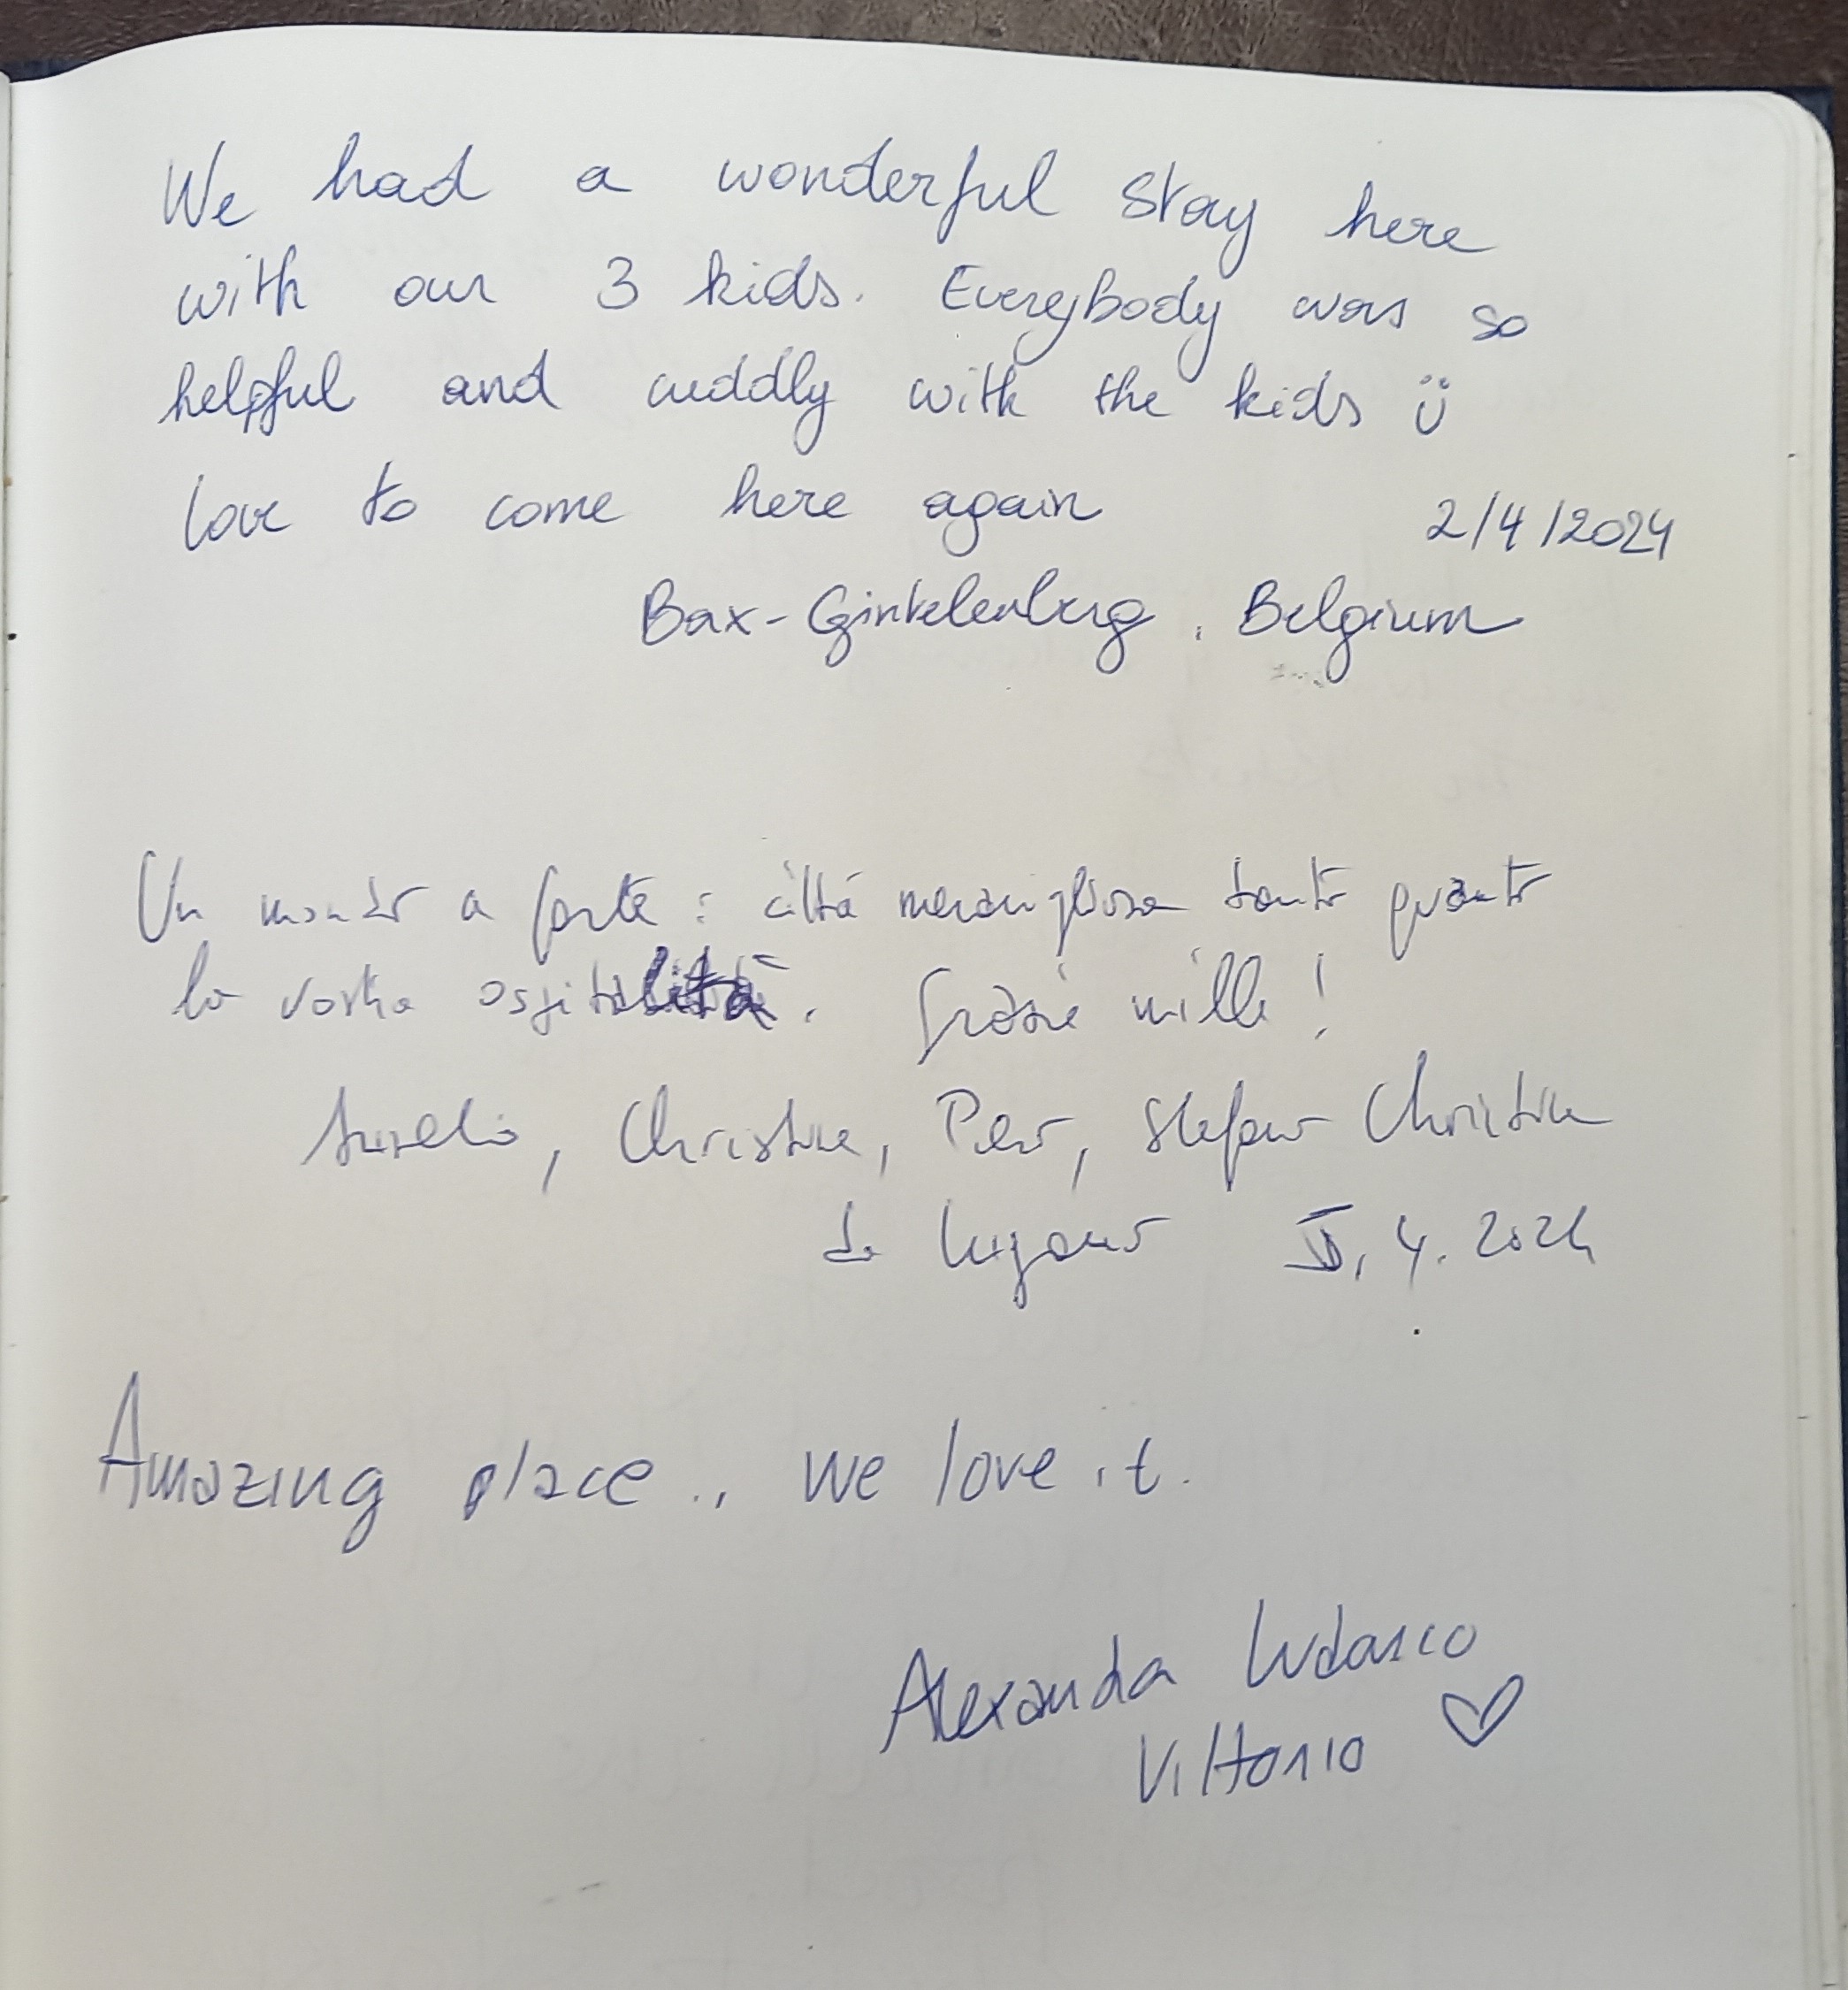 We had a wonderful stay here
with our 3 kids. Everybody was so
helpful and cuddly with the kids ü
love to come here again 2/4/2024
Bax-Ginkelenberg, Belgium
Un mondo a parte : città meravigliosa tanto quanto
la vostra ospitalità. Grazie mille!
Aurelio, Christine, Piero, Stefano Christina
da Lugano 4.2024
Amazing place.., we love it.
Alexandra Ludasco
Vittorio ♡